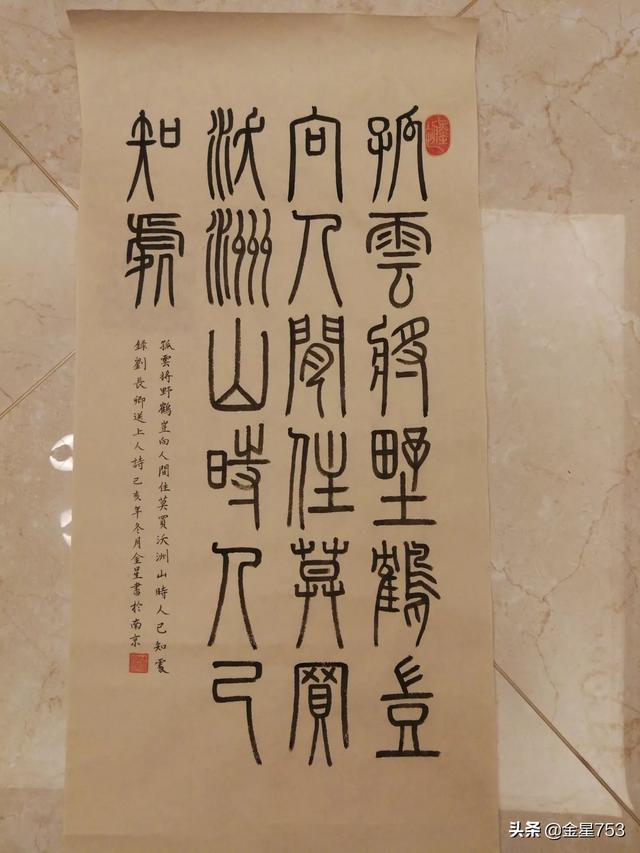 孤雲將野鶴豈
向人間住莫買
沃洲山時人已
知處
孤雲將野鶴豈向人間住莫買沃洲山時人已知處
錄劉長卿送上人詩己亥年冬月金星書於南京
头条 @金星753